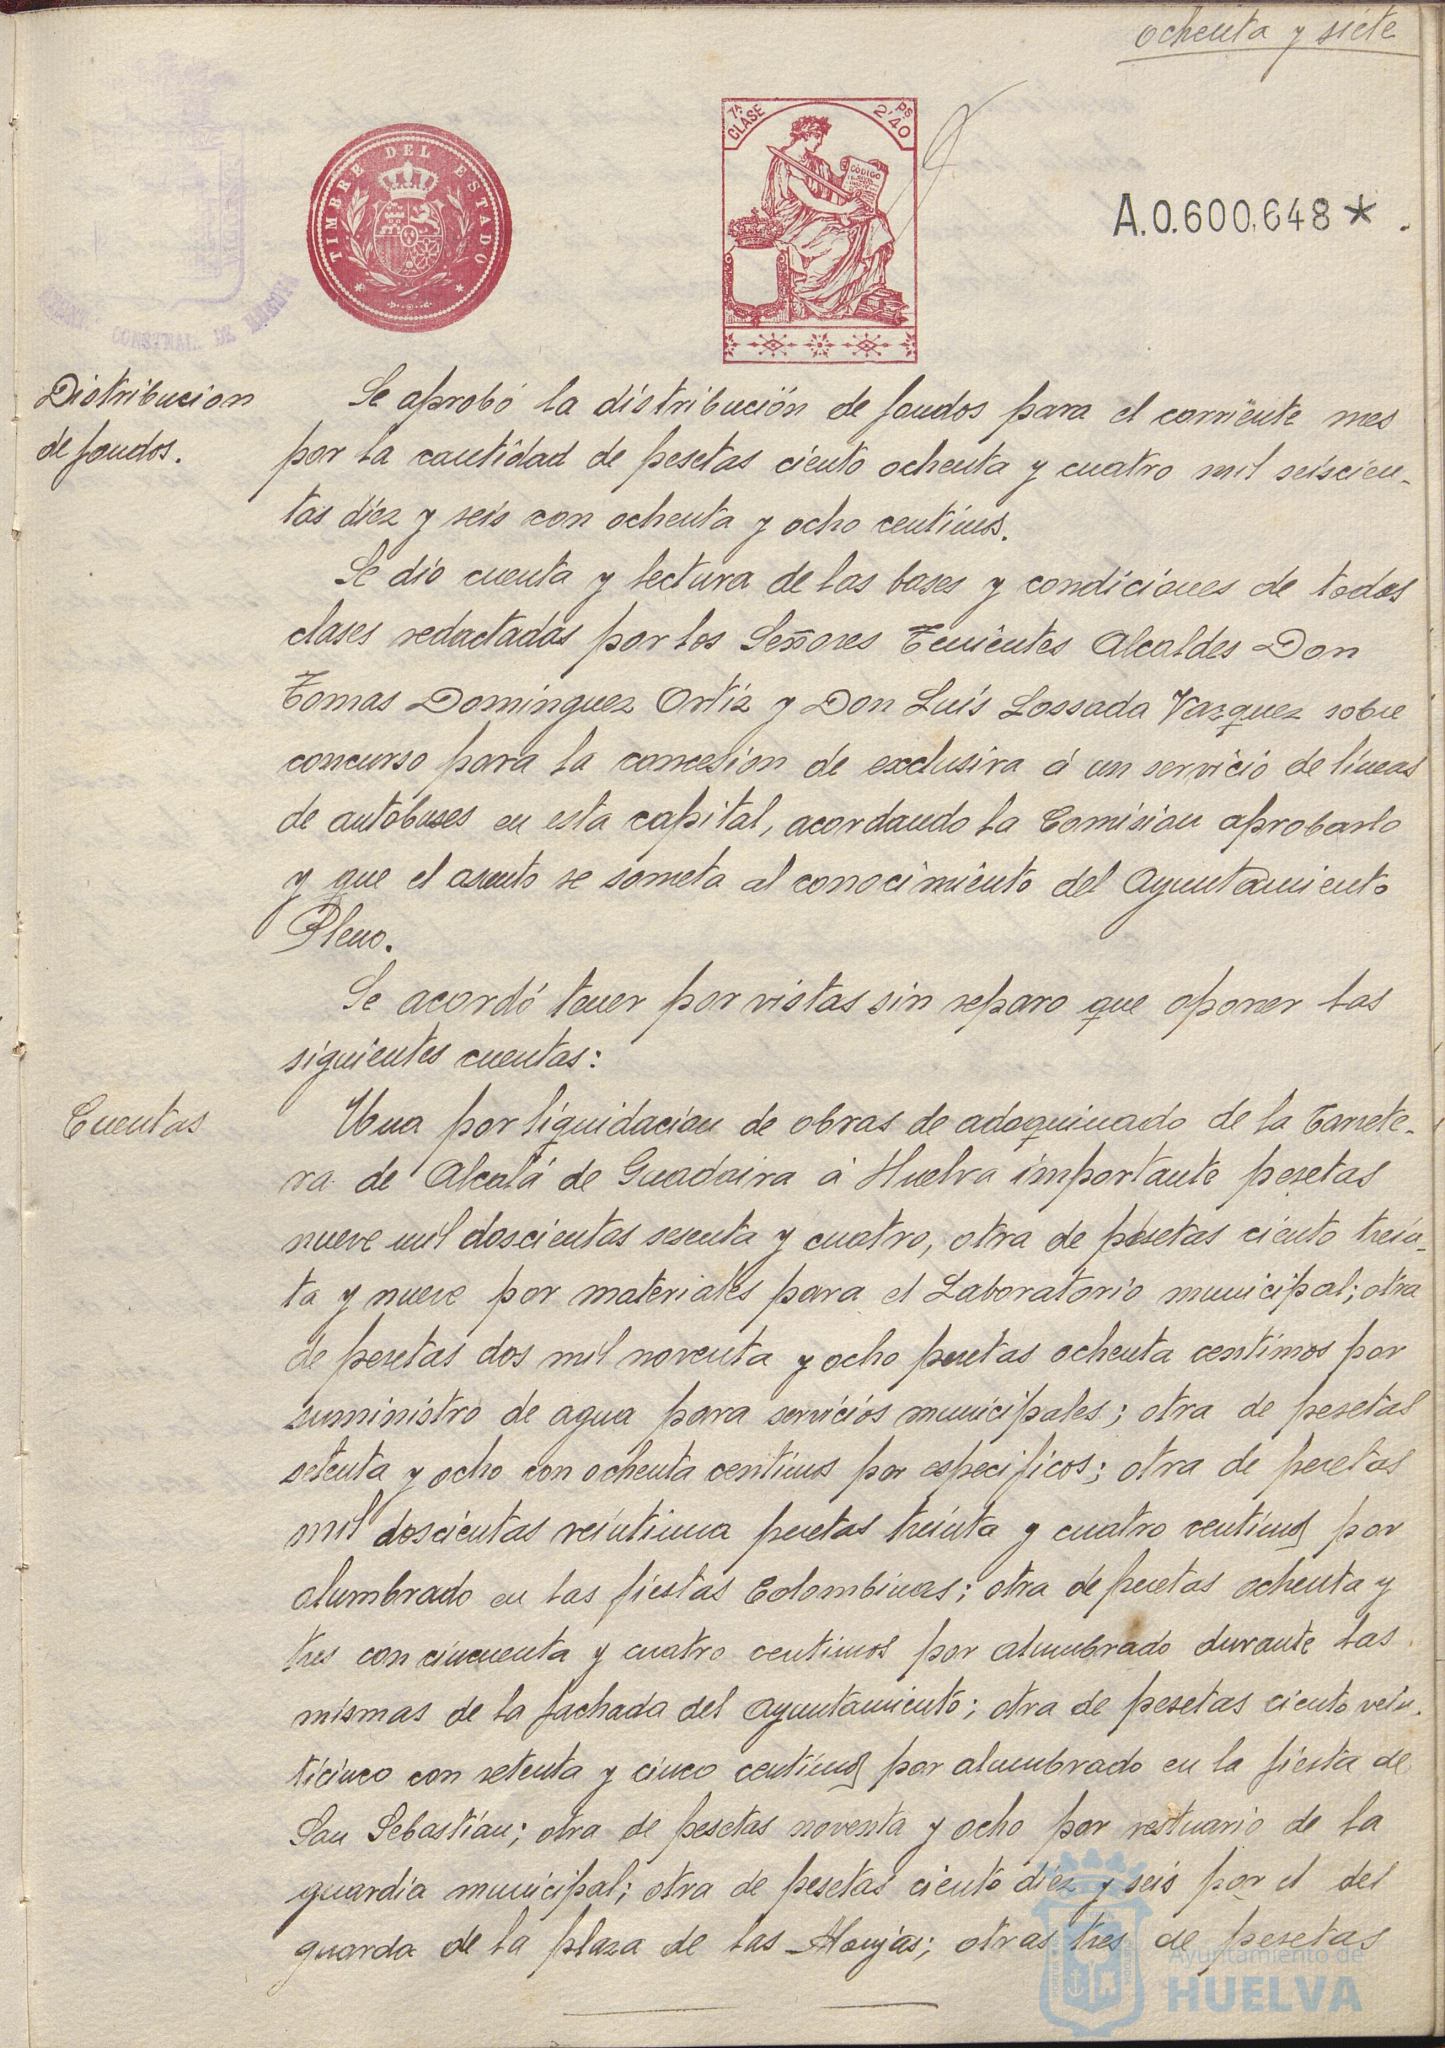 ochenta y siete
TIMBRE DEL ESTADO
7ª CLASE
2'40 PS
CÓDIGO
A.0.600.648*.
CONSTNAL. DE HUELVA
Distribucion
de fondos.
Se aprobó la distribución de fondos para el corriente mes
por la cantidad de pesetas ciento ochenta y cuatro mil seiscien-
tas diez y seis con ochenta y ocho centimos.
Se dio cuenta y lectura de las bases y condiciones de todas
clases redactadas por los Señores Tenientes Alcaldes Don
Tomas Dominguez Ortiz y Don Luis Lossada Vazquez sobre
concurso para la concesion de exclusiva á un servicio de lineas
de autobuses en esta capital, acordando la Comision aprobarlo
y que el asunto se someta al conocimiento del Ayuntamiento
Pleno.
Se acordó tener por vistas sin reparo que oponer las
siguientes cuentas:
Cuentas
Una por liquidacion de obras de adoquinado de la Carrete-
ra de Alcalá de Guadaira á Huelva importante pesetas
nueve mil doscientas sesenta y cuatro, otra de pesetas ciento trein-
ta y nueve por materiales para el Laboratorio municipal; otra
de pesetas dos mil noventa y ocho pesetas ochenta centimos por
suministro de agua para servicios municipales; otra de pesetas
setenta y ocho con ochenta centimos por especificos; otra de pesetas
mil doscientas veintiuna pesetas treinta y cuatro centimos por
alumbrado en las fiestas Colombinas; otra de pesetas ochenta y
tres con cincuenta y cuatro centimos por alumbrado durante las
mismas de la fachada del Ayuntamiento; otra de pesetas ciento vein-
ticinco con setenta y cinco centimos por alumbrado en la fiesta de
San Sebastián; otra de pesetas noventa y ocho por vestuario de la
guardia municipal; otra de pesetas ciento diez y seis por el del
guarda de la plaza de las Monjas; otras tres de pesetas
Ayuntamiento de
HUELVA